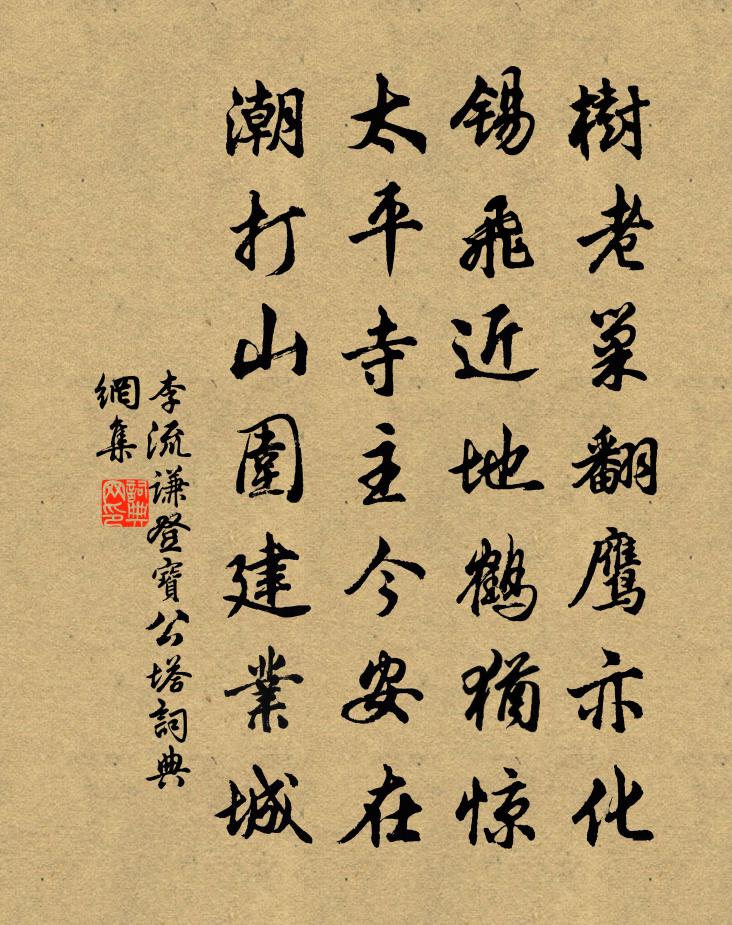 樹老巢翻鷹亦化
錫飛近地鶴猶惊
太平寺主今安在
潮打山圍建業城
李流謙登寶公塔詞典
網集
詞典
网印